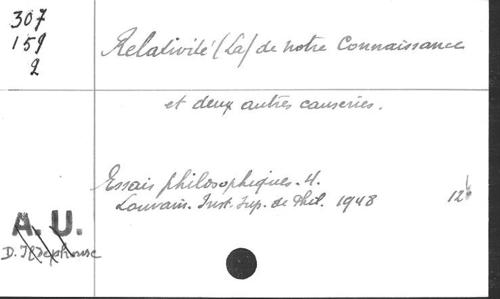 307
159
2
Relativité (La) de notre Connaissance
et deux autres causeries.
Essais philosophiques. 4.
Louvain. Inst. Sup. de Phil. 1948
12
A. U.
D.